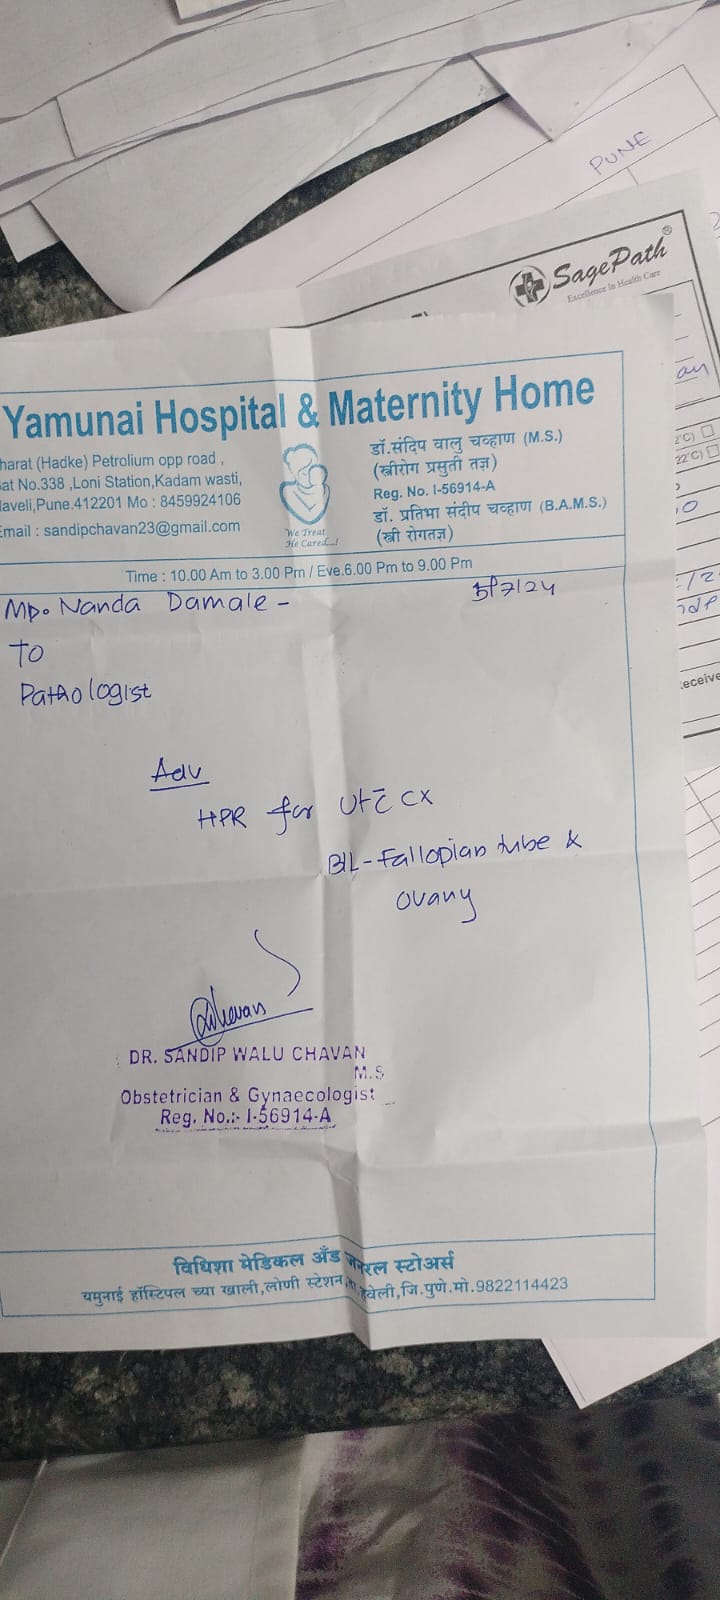 PUNE
SagePath®
Excellence In Health Care
Yamunai Hospital & Maternity Home
harat (Hadke) Petrolium opp road ,
at No.338 ,Loni Station,Kadam wasti,
laveli,Pune.412201 Mo : 8459924106
Email : sandipchavan23@gmail.com
We Treat
He Cared...!
डॉ.संदिप वालु चव्हाण (M.S.)
(स्त्रीरोग प्रसुती तज्ञ)
Reg. No. I-56914-A
डॉ. प्रतिभा संदीप चव्हाण (B.A.M.S.)
(स्त्री रोगतज्ञ)
Time : 10.00 Am to 3.00 Pm / Eve.6.00 Pm to 9.00 Pm
Nanda Damale -
To
Pathologist
Adv
HPR for Ut c̄ CX
B/L - Fallopian tube &
Ovary
DR. SANDIP WALU CHAVAN
M.S
Obstetrician & Gynaecologist
Reg. No.:- I-56914-A
विधिशा मेडिकल अँड जनरल स्टोअर्स
यमुनाई हॉस्पिटल च्या खाली,लोणी स्टेशन, हवेली,जि.पुणे.मो.9822114423
22°C)
eceive